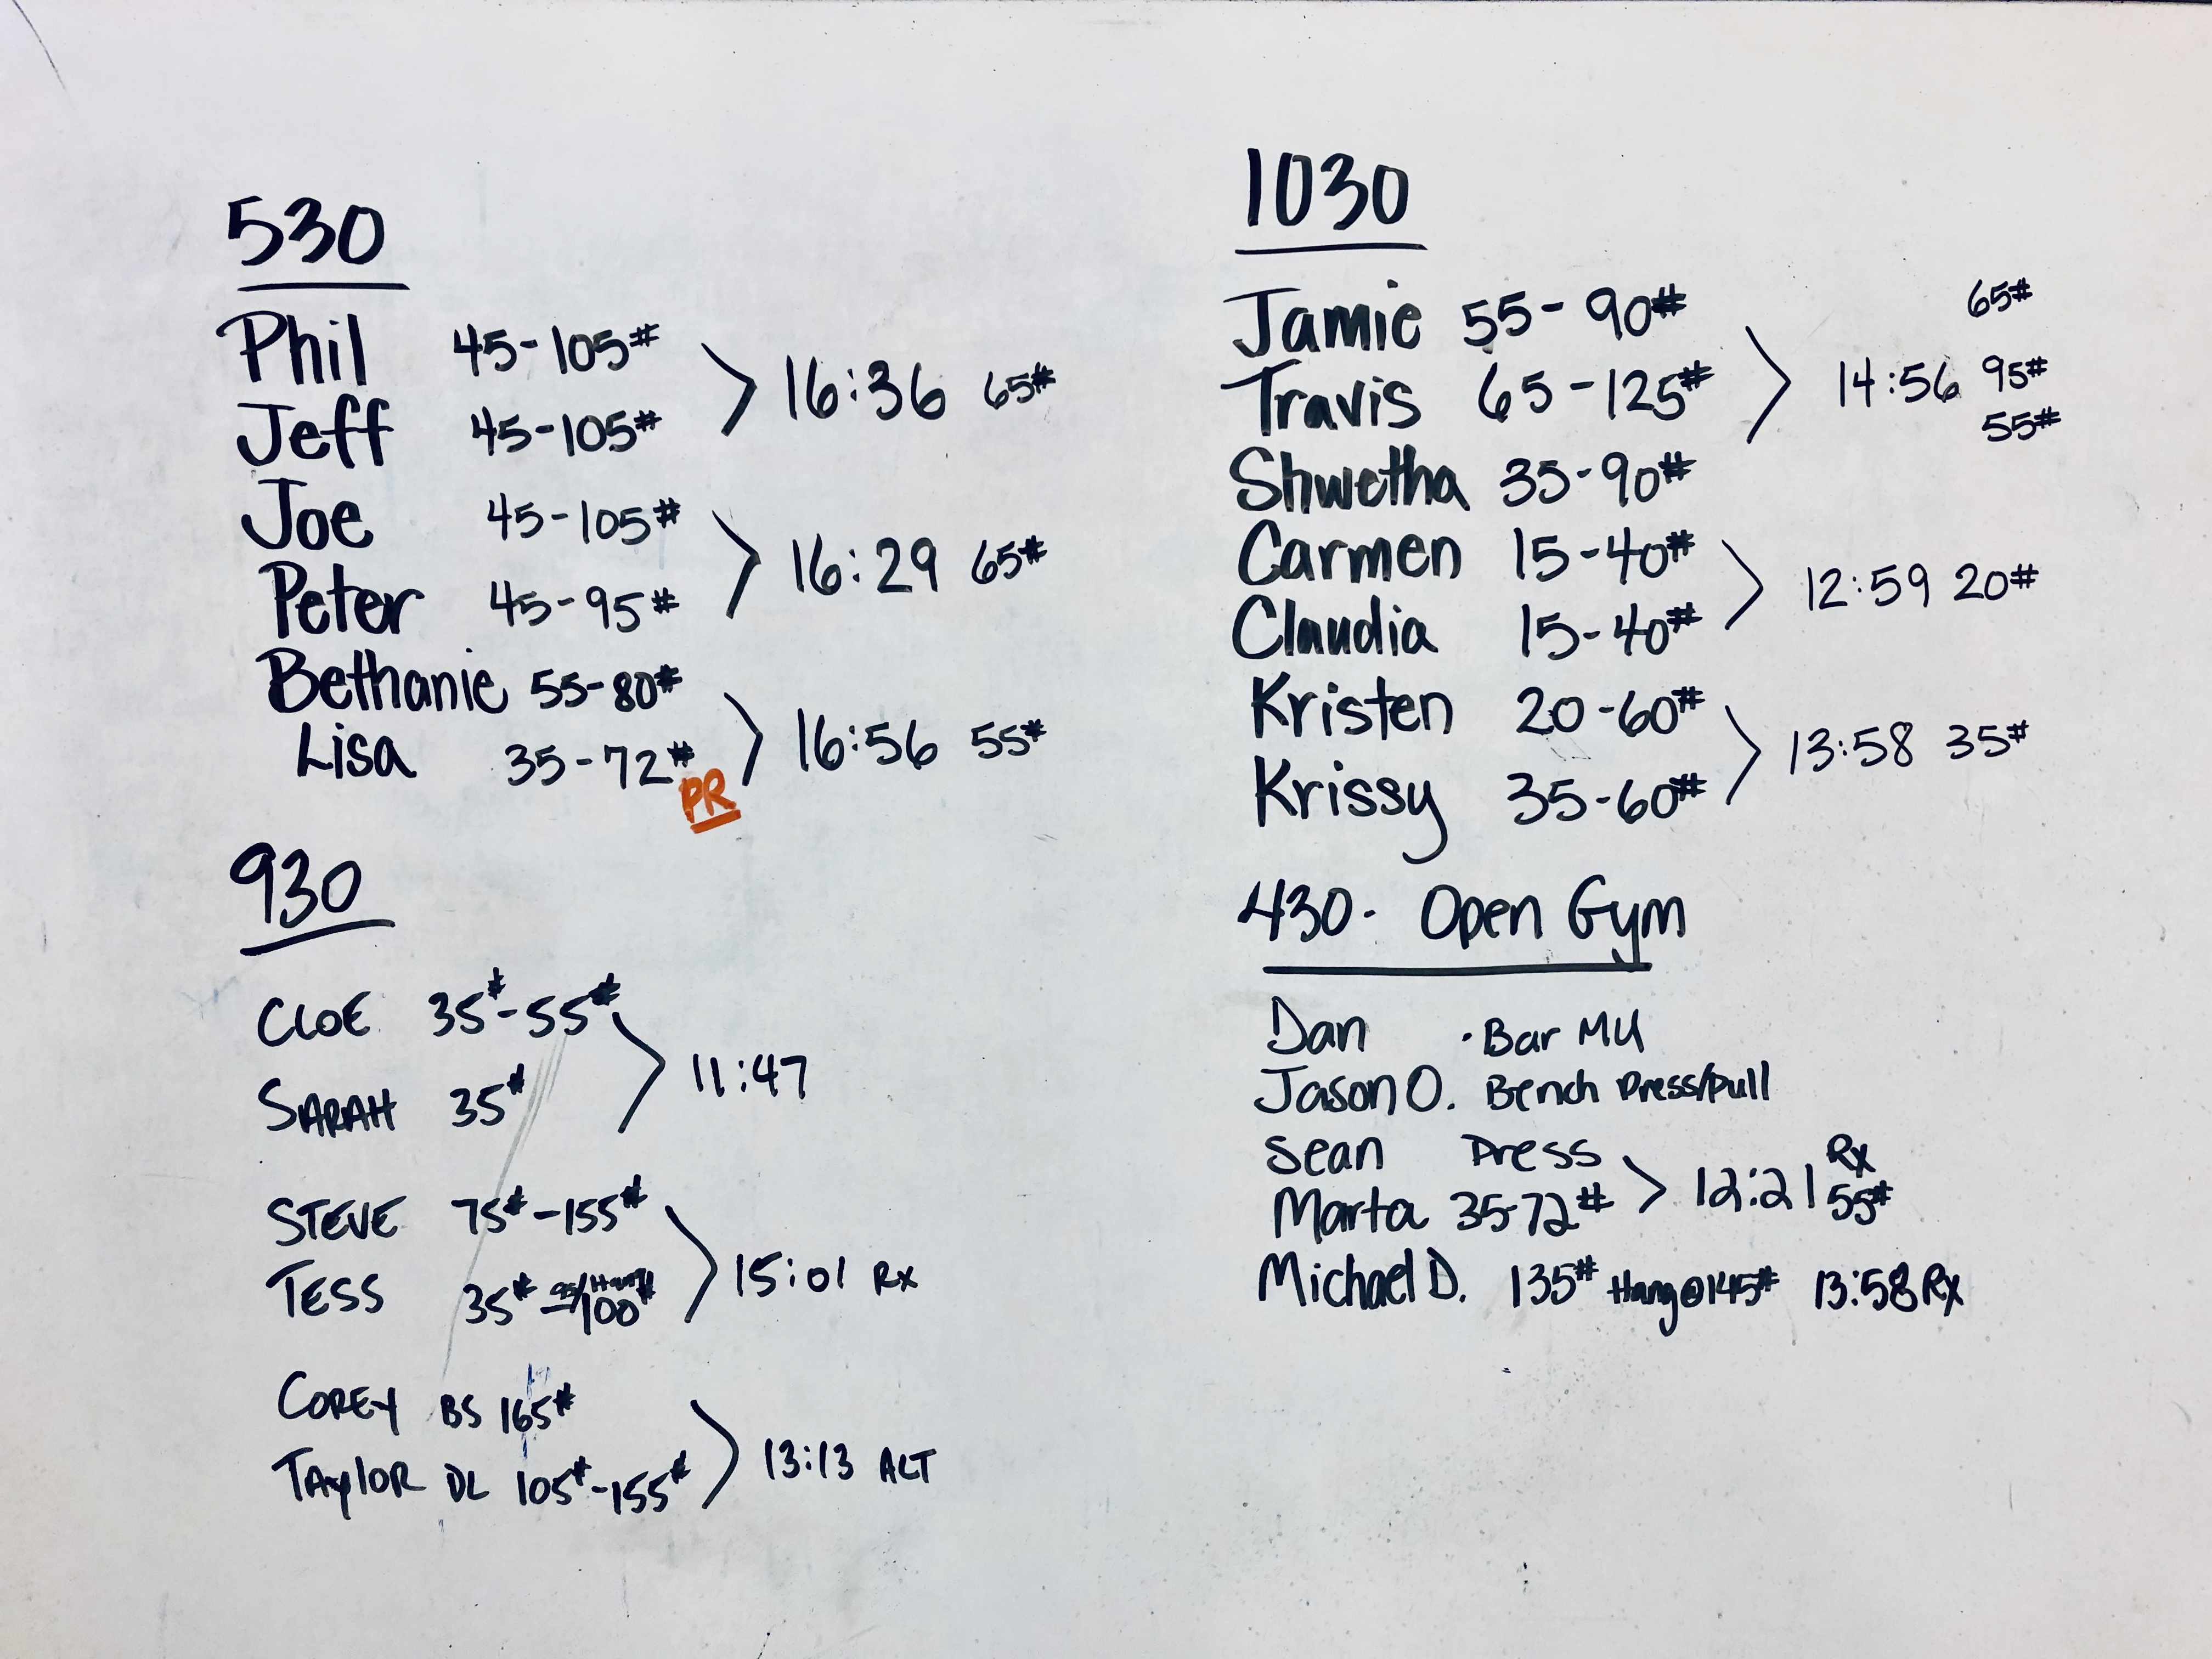 530
Phil 45-105#
Jeff 45-105#
> 16:36 65#
Joe 45-105#
Peter 45-95#
> 16:29 65#
Bethanie 55-80#
Lisa 35-72# PR
> 16:56 55#
930
CLOE 35#-55#
SARAH 35#
> 11:47
STEVE 75#-155#
TESS 35# 95/Hang 100#
> 15:01 Rx
COREY BS 165#
TAYLOR DL 105#-155#
> 13:13 ALT
1030
Jamie 55-90#
Travis 65-125#
Shwetha 35-90#
> 14:56 65# 95# 55#
Carmen 15-40#
Claudia 15-40#
> 12:59 20#
Kristen 20-60#
Krissy 35-60#
> 13:58 35#
430- Open Gym
Dan - Bar MU
Jason O. Bench Press/pull
Sean Press
Marta 35-72#
> 12:21 Rx 55#
Michael D. 135# Hang@145# 13:58 Rx